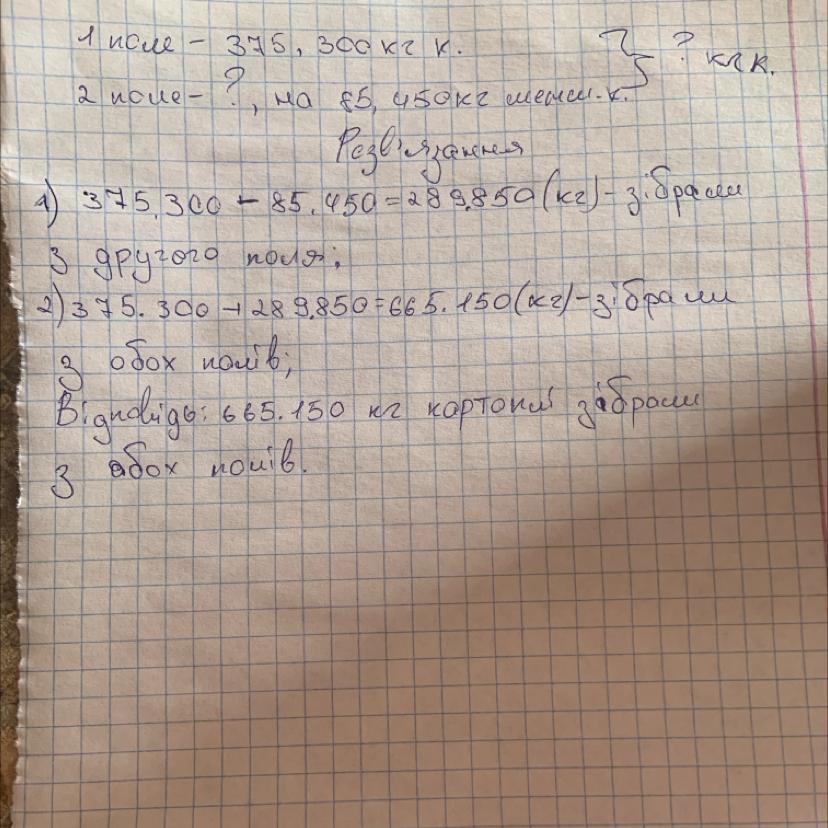 1 поле - 375, 300 кг к.
2 поле - ?, на 85, 450 кг менш. к. } ? кг к.
Розв'язання
1) 375.300 - 85.450 = 289.850 (кг) - зібрали
з другого поля;
2) 375.300 + 289.850 = 665.150 (кг) - зібрали
з обох полів;
Відповідь: 665.150 кг картоплі зібрали
з обох полів.